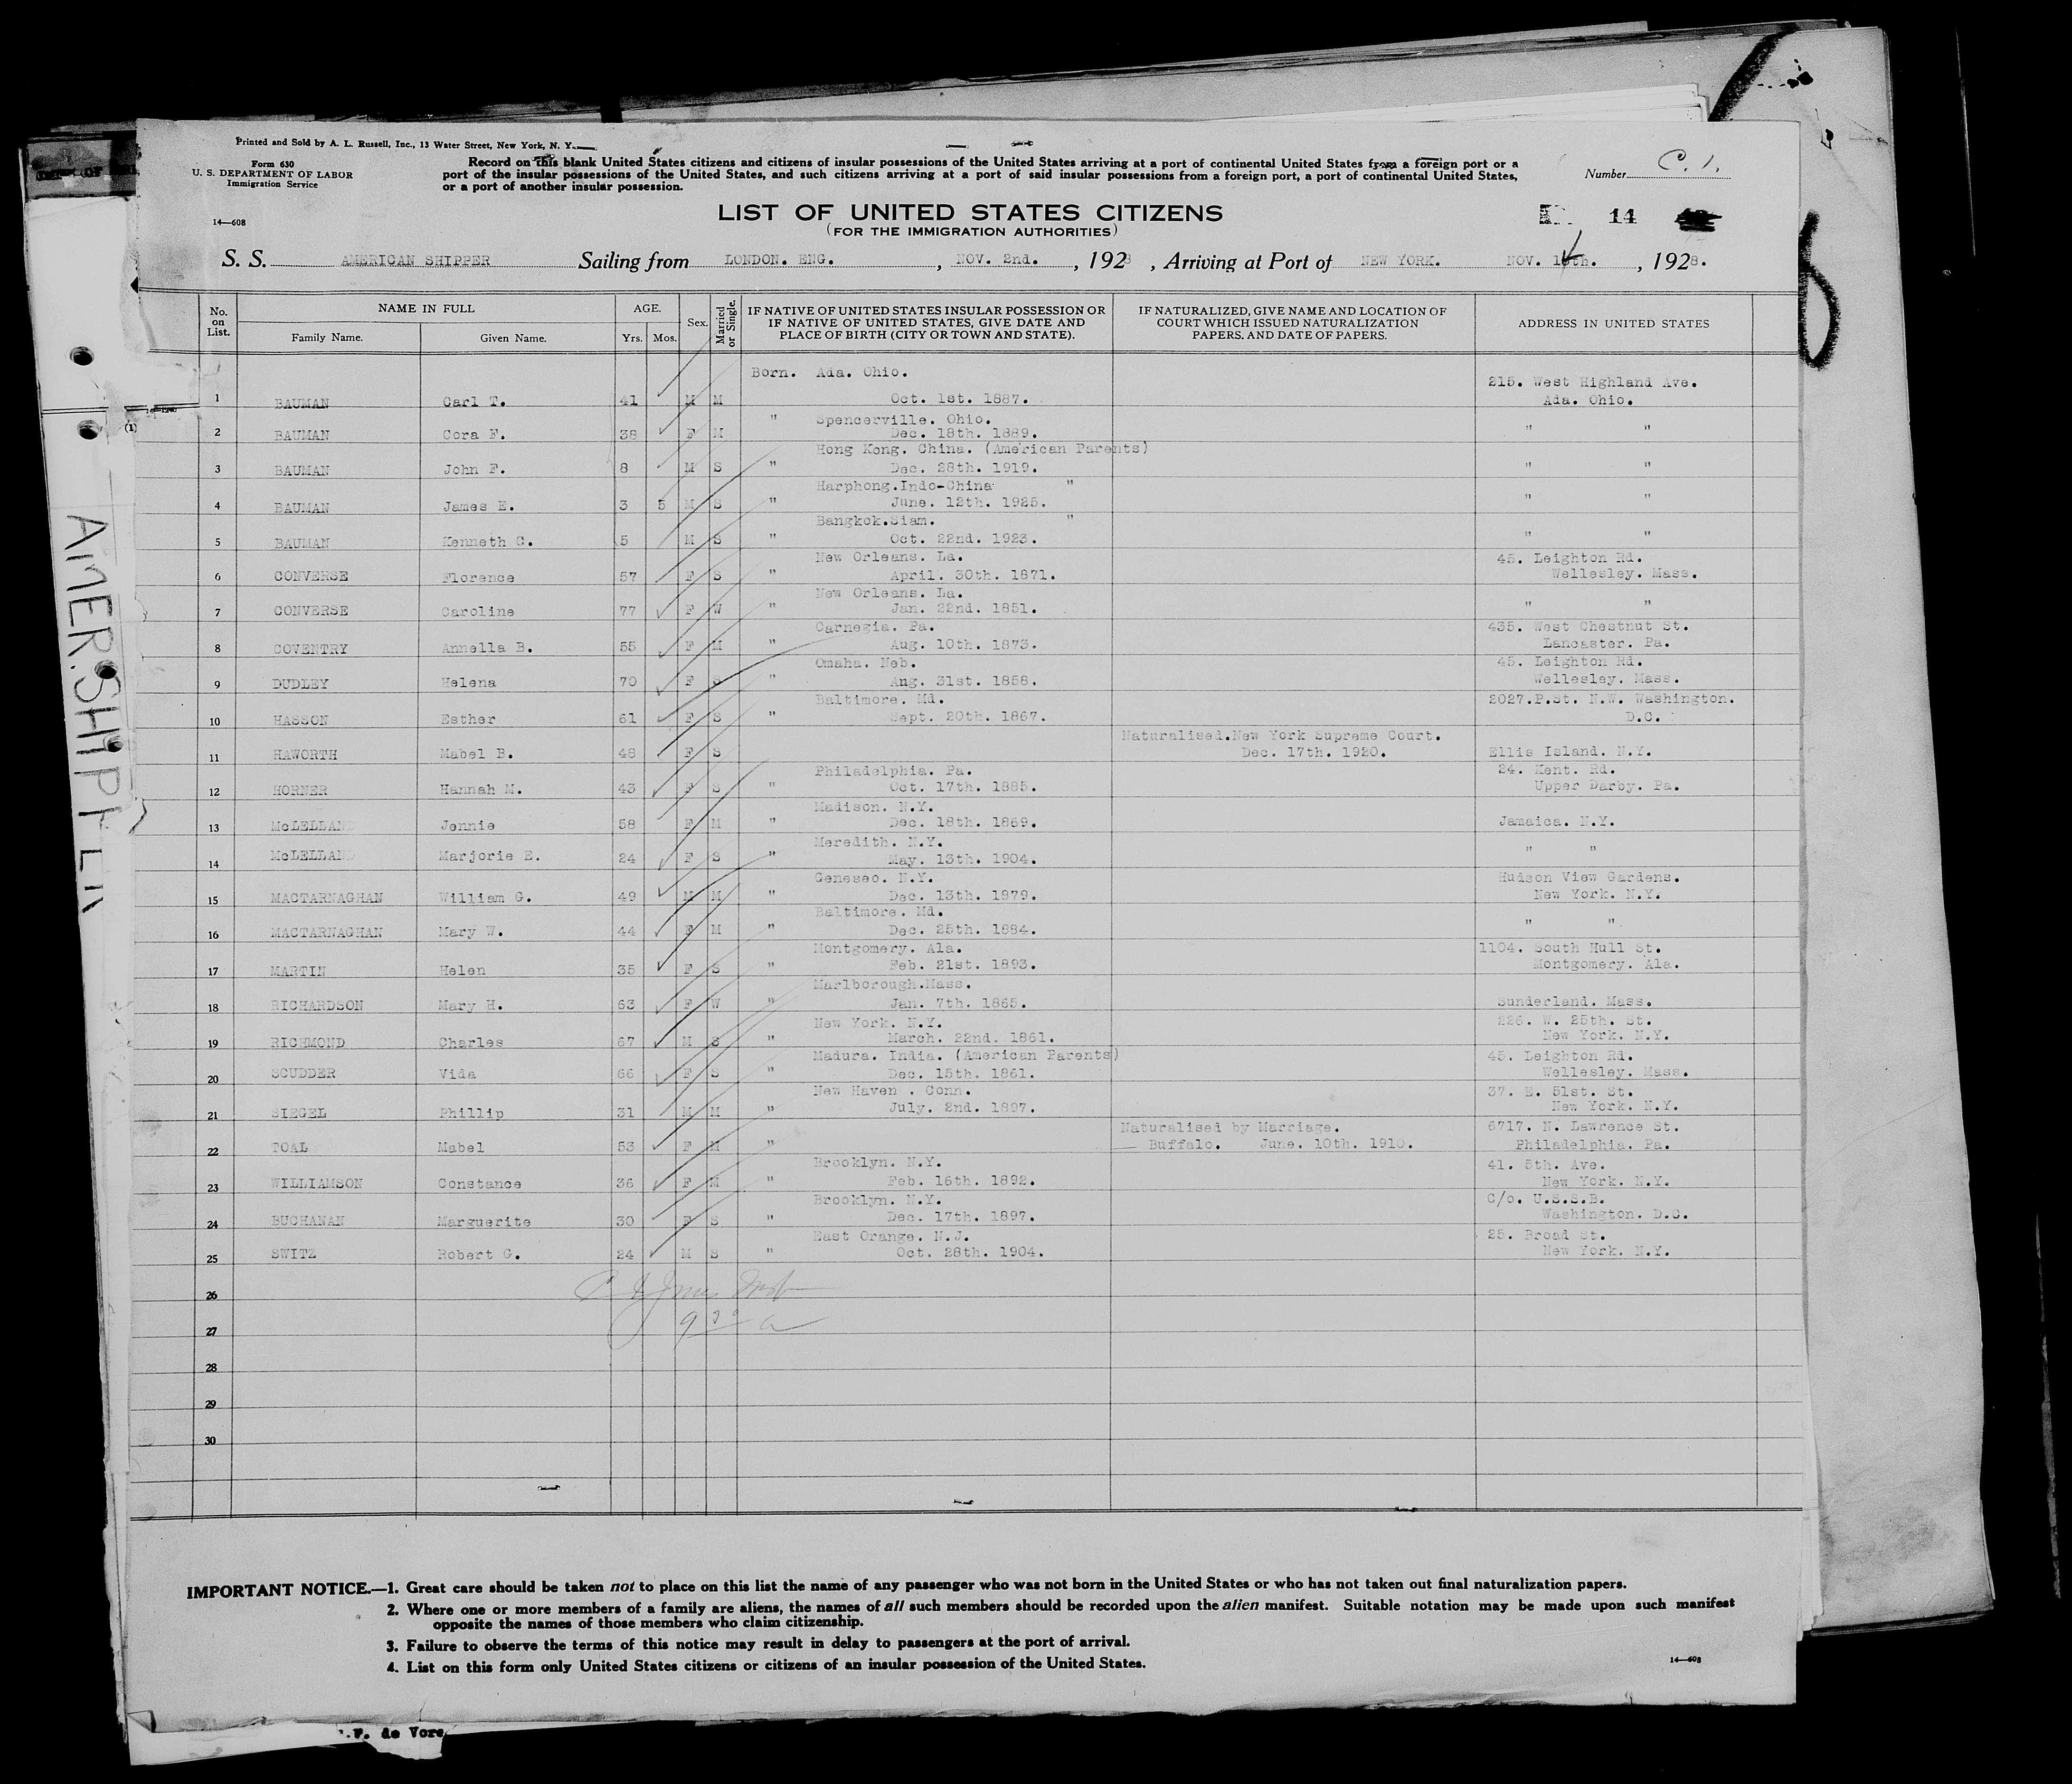 Printed and Sold by A. L. Russell, Inc., 13 Water Street, New York, N. Y.
Form 630
U. S. DEPARTMENT OF LABOR
Immigration Service
Record on this blank United States citizens and citizens of insular possessions of the United States arriving at a port of continental United States from a foreign port or a
port of the insular possessions of the United States, and such citizens arriving at a port of said insular possessions from a foreign port, a port of continental United States,
or a port of another insular possession.
Number C. 1.
14—608
LIST OF UNITED STATES CITIZENS
(FOR THE IMMIGRATION AUTHORITIES)
14
S. S. AMERICAN SHIPPER Sailing from LONDON. ENG. , NOV. 2nd. , 1928 , Arriving at Port of NEW YORK. NOV. , 1928.
No. on List. NAME IN FULL Family Name. Given Name. AGE. Yrs. Mos. Sex. Married or Single. IF NATIVE OF UNITED STATES INSULAR POSSESSION OR IF NATIVE OF UNITED STATES, GIVE DATE AND PLACE OF BIRTH (CITY OR TOWN AND STATE). IF NATURALIZED, GIVE NAME AND LOCATION OF COURT WHICH ISSUED NATURALIZATION PAPERS, AND DATE OF PAPERS. ADDRESS IN UNITED STATES
Born. Ada. Ohio. 215. West Highland Ave.
1 BAUMAN Carl T. 41 M M Oct. 1st. 1887. Ada. Ohio.
" Spencerville. Ohio.
2 BAUMAN Cora F. 38 F M Dec. 18th. 1889. " "
Hong Kong. China. (American Parents)
3 BAUMAN John F. 8 M S " Dec. 28th. 1919. " "
Harphong.Indo-China "
4 BAUMAN James E. 3 5 M S " June. 12th. 1925. " "
Bangkok.Siam. "
5 BAUMAN Kenneth C. 5 M S " Oct. 22nd. 1923. " "
New Orleans. La. 45. Leighton Rd.
6 CONVERSE Florence 57 F S " April. 30th. 1871. Wellesley. Mass.
New Orleans. La.
7 CONVERSE Caroline 77 F W " Jan. 22nd. 1851. " "
Carnegia. Pa. 435. West Chestnut St.
8 COVENTRY Annella B. 55 F M " Aug. 10th. 1873. Lancaster. Pa.
Omaha. Neb. 45. Leighton Rd.
9 DUDLEY Helena 70 F S " Aug. 31st. 1858. Wellesley. Mass.
Baltimore. Md. 2027.P.St. N.W. Washington.
10 HASSON Esther 61 F S " Sept. 20th. 1867. D.C.
Naturalised.New York Supreme Court.
11 HAWORTH Mabel B. 48 F S Dec. 17th. 1920. Ellis Island. N.Y.
Philadelphia. Pa. 24. Kent. Rd.
12 HORNER Hannah M. 43 F S " Oct. 17th. 1885. Upper Darby. Pa.
Madison. N.Y.
13 McLELLAND Jennie 58 F M " Dec. 18th. 1869. Jamaica. N.Y.
Meredith. N.Y.
14 McLELLAND Marjorie E. 24 F S " May. 13th. 1904. " "
Geneseo. N.Y. Hudson View Gardens.
15 MACTARNAGHAN William G. 49 M M " Dec. 13th. 1879. New York. N.Y.
Baltimore. Md.
16 MACTARNAGHAN Mary W. 44 F M " Dec. 25th. 1884. " "
Montgomery. Ala. 1104. South Hull St.
17 MARTIN Helen 35 F S " Feb. 21st. 1893. Montgomery. Ala.
Marlborough.Mass.
18 RICHARDSON Mary H. 63 F W " Jan. 7th. 1865. Sunderland. Mass.
New York. N.Y. 226. W. 25th. St.
19 RICHMOND Charles 67 M S " March. 22nd. 1861. New York. N.Y.
Madura. India. (American Parents) 45. Leighton Rd.
20 SCUDDER Vida 66 F S Dec. 15th. 1861. Wellesley. Mass.
New Haven . Conn. 37. E. 51st. St.
21 SIEGEL Phillip 31 M M " July. 2nd. 1897. New York. N.Y.
Naturalised by Marriage. 6717. N. Lawrence St.
22 TOAL Mabel 53 F M " Buffalo. June. 10th. 1910. Philadelphia. Pa.
Brooklyn. N.Y. 41. 5th. Ave.
23 WILLIAMSON Constance 36 F M " Feb. 16th. 1892. New York. N.Y.
Brooklyn. N.Y. C/o. U.S.S.B.
24 BUCHANAN Marguerite 30 F S " Dec. 17th. 1897. Washington. D.C.
East Orange. N.J. 25. Broad St.
25 SWITZ Robert G. 24 M S " Oct. 28th. 1904. New York. N.Y.
26
27 9 30 a
28
29
30
IMPORTANT NOTICE.—1. Great care should be taken not to place on this list the name of any passenger who was not born in the United States or who has not taken out final naturalization papers.
2. Where one or more members of a family are aliens, the names of all such members should be recorded upon the alien manifest. Suitable notation may be made upon such manifest
opposite the names of those members who claim citizenship.
3. Failure to observe the terms of this notice may result in delay to passengers at the port of arrival.
4. List on this form only United States citizens or citizens of an insular possession of the United States.
14—608
(1)
AMER. SHIPPER
de Vore